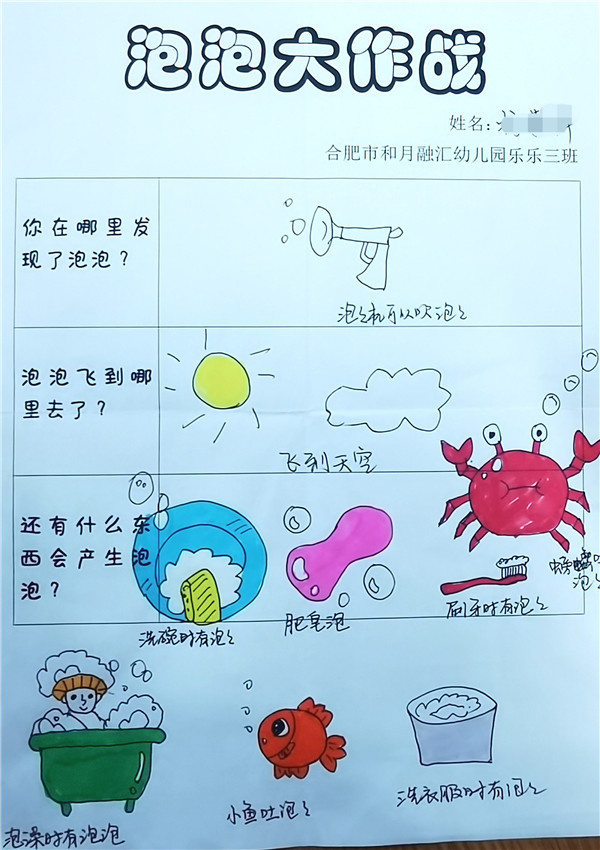 泡泡大作战
姓名:
合肥市和月融汇幼儿园乐乐三班
你在哪里发
现了泡泡？
泡々机可以吹泡々
泡泡飞到哪
里去了？
飞到天空
还有什么东
西会产生泡
泡？
洗碗时有泡々
肥皂泡
刷牙时有泡々
螃蟹吐
泡々
泡澡时有泡泡
小鱼吐泡々
洗衣服时有泡々